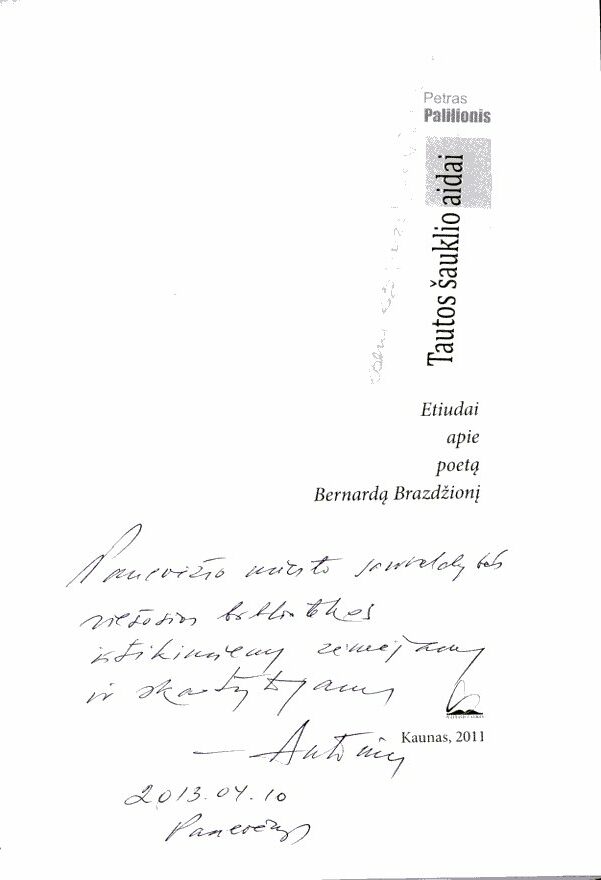 Petras
Palilionis
Tautos šauklio aidai
Etiudai
apie
poetą
Bernardą Brazdžionį
Panevėžio miesto savivaldybės
viešosios bibliotekos
ir skaitytojams
Kaunas, 2011
2013.04.10
Panevėžys